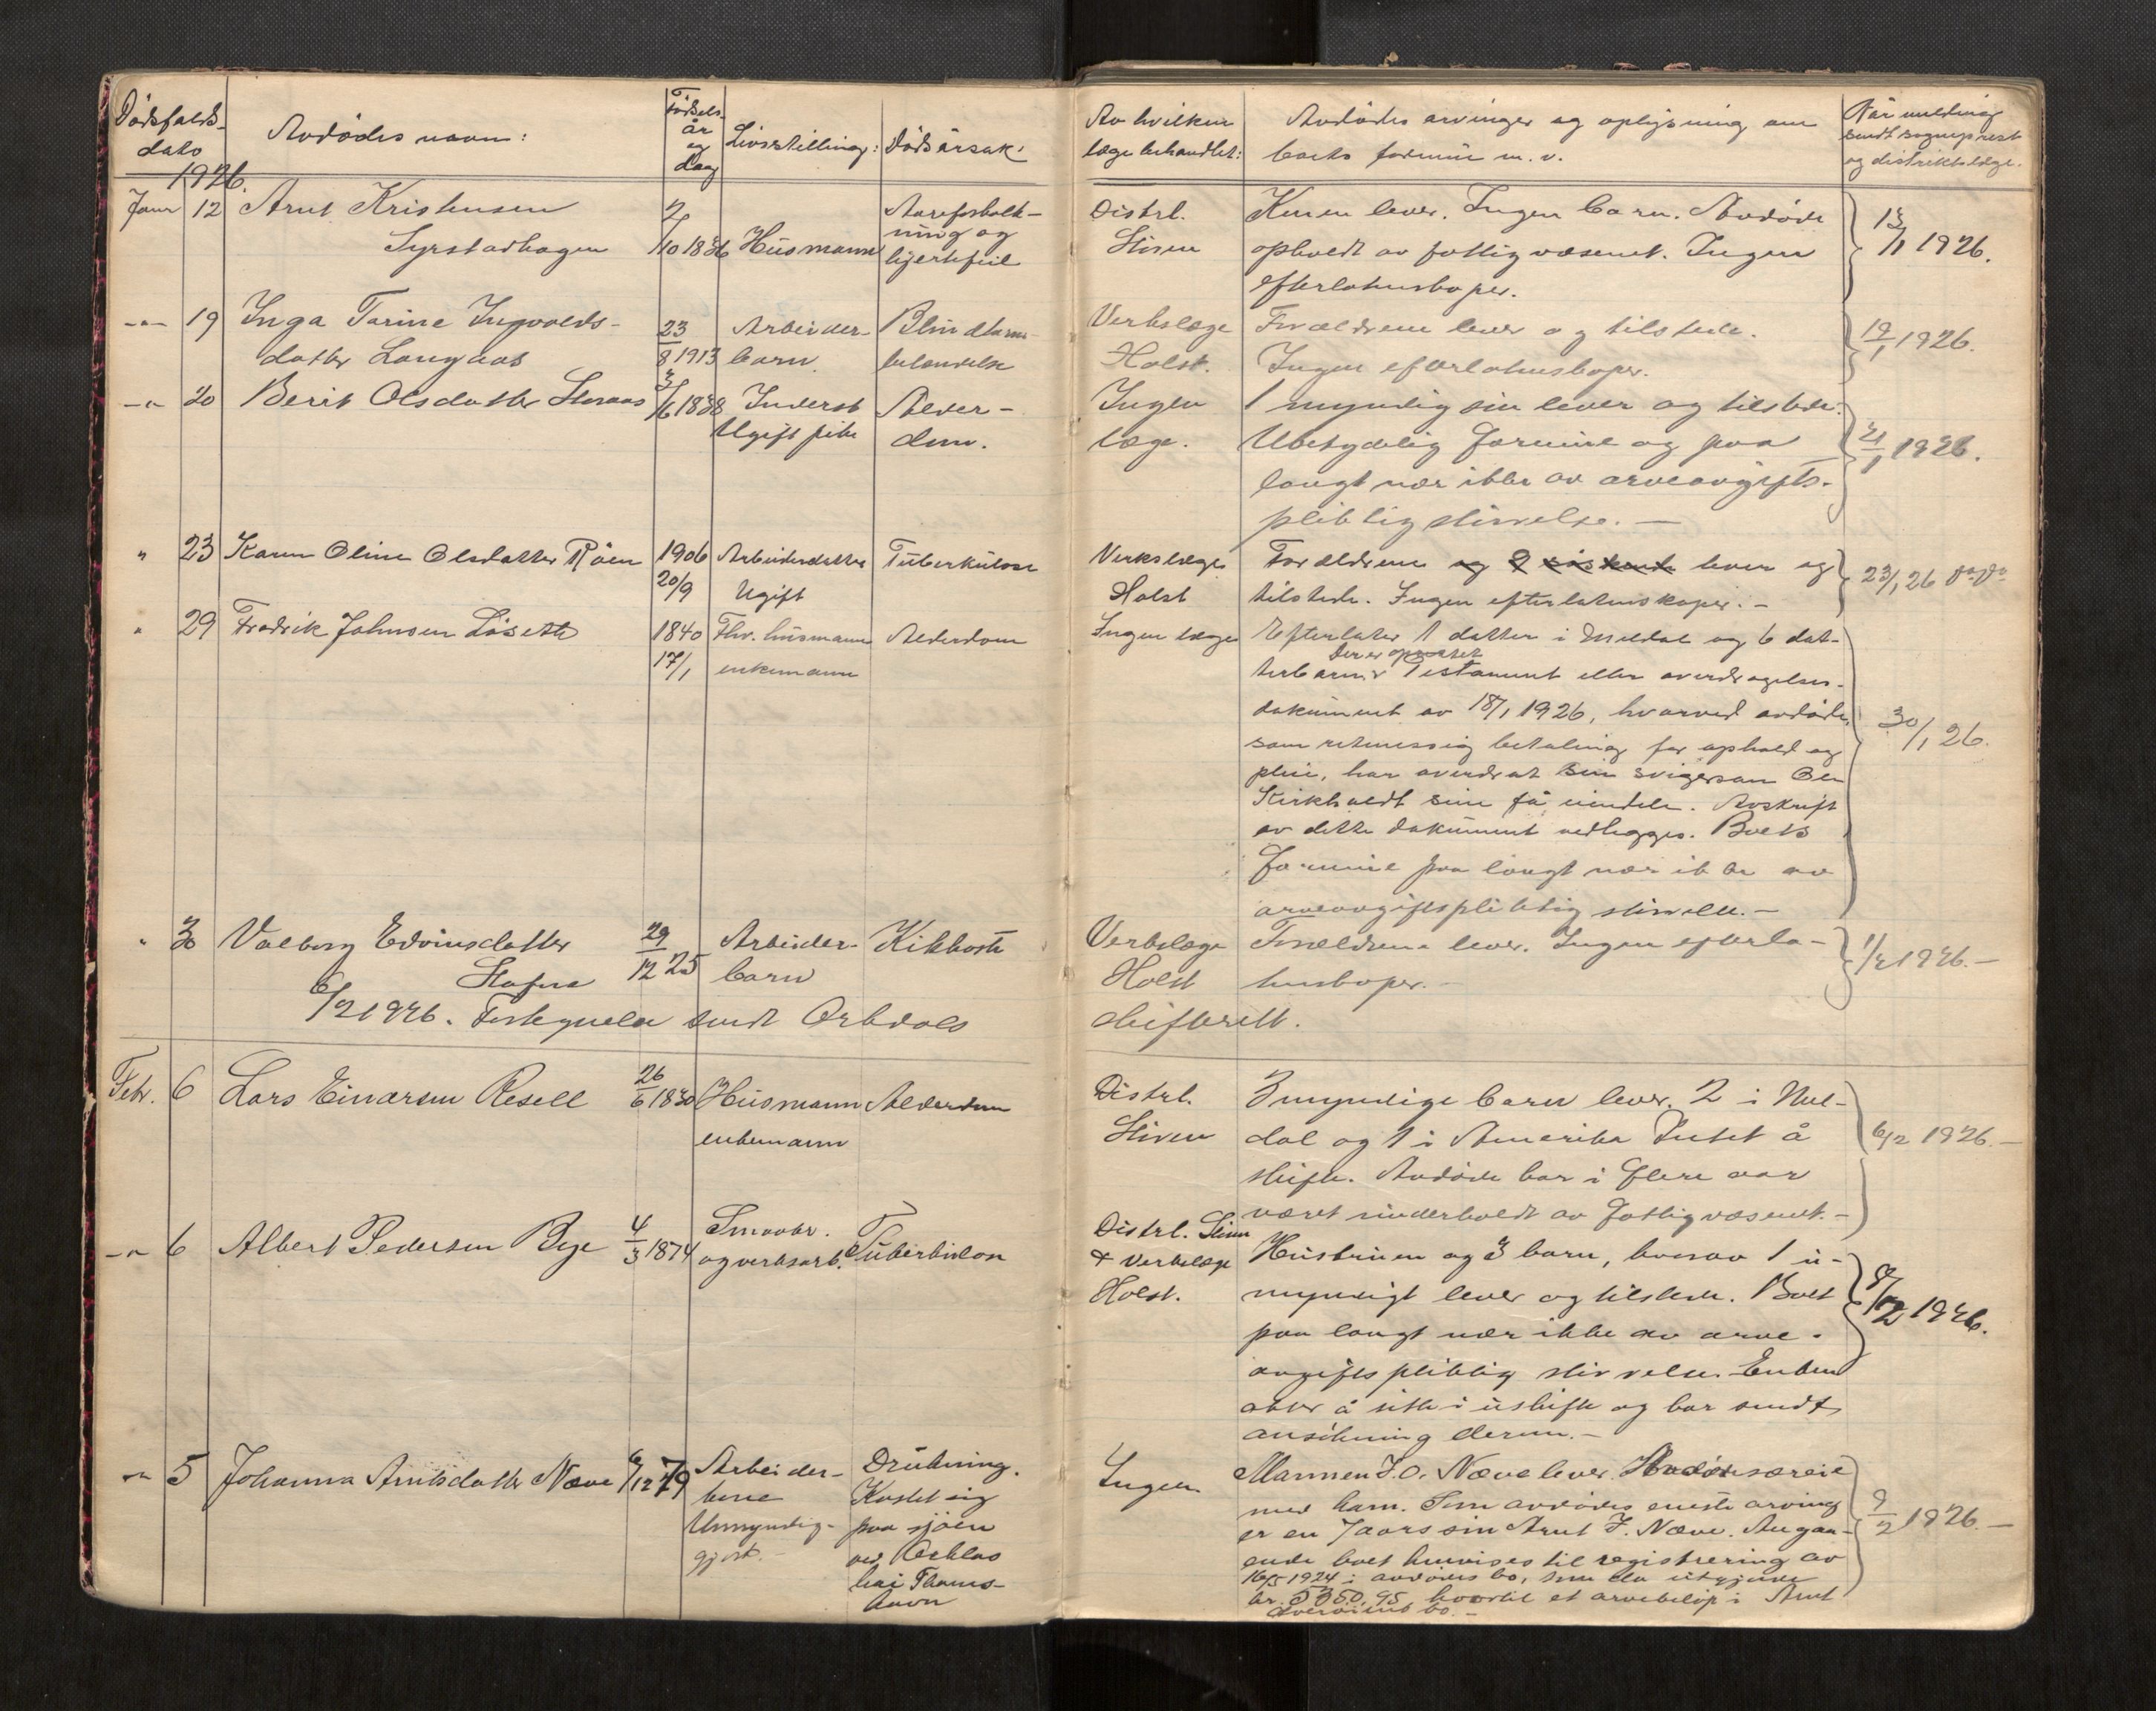 Dödsfalds-
dato
1926.
Avdödes navn:
Födsels-
år
og
dag
Livsstilling:
Dödsårsak:
Av hvilken
læge behandlet:
Avdödes arvinger og oplysning om
boets formue m. v.
Når melding
sendt sogneprest
og distriktslæge.
Janr 12 Arnt Kristensen
Syrstadhagen
2/10 1836 Husmann
Aareforkalk-
ning og
hjertefeil
Distrl.
Steen
Konen lever. Ingen barn. Avdöde
opholdt av fattigvæsenet. Ingen
efterlatenskaper.
13/1 1926.
-"- 19 Inga Tarine Ingvalds-
datter Langaas
23/8 1913
Arbeider-
barn
Blindtarm-
betændelse
Verkslæge
Holst.
Forældrene lever og tilstede.
Ingen efterlatenskaper.
19/1 1926.
-"- 20 Berit Olsdatter Storaas
3/6 1838
Inderst
Ugift pike
Alder-
dom.
Ingen
læge.
1 myndig sön lever og tilstede.
Ubetydelig formue og paa
langt nær ikke av arveavgifts-
pliktig störrelse. —
21/1 1926.
" 23 Karen Oline Olsdatter Röen
1906
20/9
Arbeiderdatter
Ugift
Tuberkulose
Verkslæge
Holst
Forældrene og 2 söskende lever og
tilstede. Ingen efterlatenskaper. -
23/1 26
" 29 Fredrik Johnsen Löseth
1840
17/1
Fhv. husmann
enkemann
Alderdom
Ingen læge
Efterlater 1 datter i Meldal og 6 dat-
terbarn. Der er oprettet Testament eller overdragelses-
dokument av 18/1 1926, hvorved avdöde,
som retmessig betaling for ophold og
pleie, har overdrat sin svigersön Ole
Kirkholdt sine få eiendele. Avskrift
av dette dokument vedlegges. Boets
formue paa langt nær ikke av
arveavgiftspliktig störrelse. -
30/1 26.
" 30 Valborg Edvinsdatter
Stafne
29/12 25
Arbeider-
barn
Kikhoste
Verkslæge
Holst
Forældrene lever. Ingen efterla-
tenskaper. -
1/2 1926. -
6/2 1926. Fortegnelse sendt Orkdals
skifterett.
Febr. 6 Lars Einarsen Resell
26/6 1830
Husmann
enkemann
Alderdom
Distrl.
Steen
3 myndige barn lever. 2 i Mel-
dal og 1 i Amerika Intet å
skifte. Avdöde har i flere aar
været underholdt av fattigvæsenet. -
6/2 1926. -
-"- 6 Albert Pedersen Bye
4/3 1874
Smaabr.
og verksarb.
Tuberkulose
Distrl. Steen
& Verkslæge
Holst.
Hustruen og 3 barn, hvorav 1 u-
myndigt lever og tilstede. Boet
paa langt nær ikke av arve-
avgiftspliktig störrelse. Enken
akter å sitte i uskifte og har sendt
ansökning derom. -
8/2 1926.
-"- 5 Johanna Arntsdatter Næve
6/12 79
Arbeider-
kone
Umyndig-
gjort. -
Drukning.
Kastet sig
paa sjöen
ved Orklas
kai Thams-
havn
Ingen.
Mannen J. O. Næve lever. Avdöde særeie
med ham. Som avdödes eneste arving
er en 7 aars sön Arnt J. Næve. Angaa-
ende boet henvises til registrering av
16/5 1924 i avdödes bo, som da utgjorde
kr. 5350,95 hvortil et arvebelöp i Arnt
bo. -
9/2 1926. -